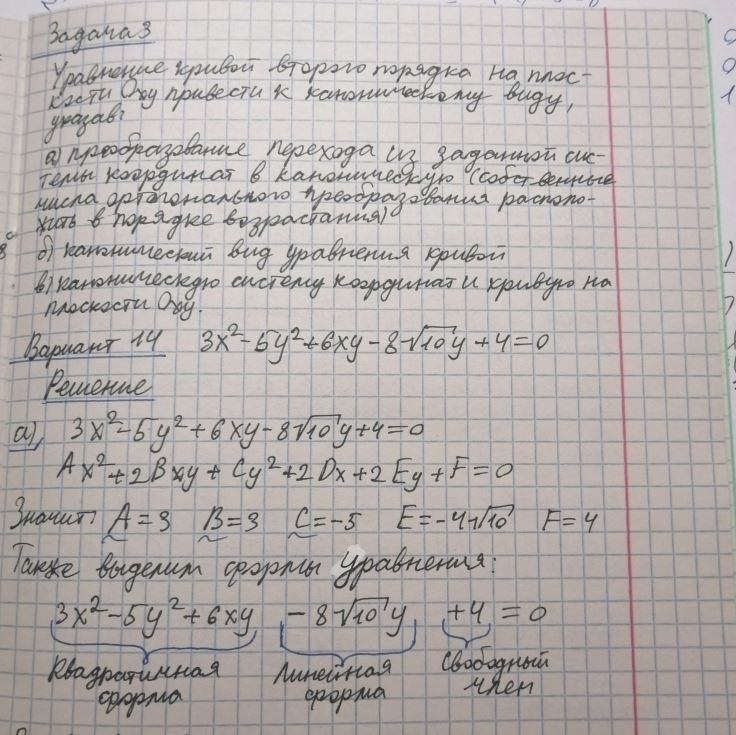 Задача 3
Уравнение кривой второго порядка на плос-
кости Oxy привести к каноническому виду,
указав:
а) преобразование перехода из заданной сис-
темы координат в каноническую (собственные
числа ортогонального преобразования располо-
жить в порядке возрастания)
б) канонический вид уравнения кривой
в) каноническую систему координат и кривую на
плоскости Oxy.
Вариант 14 3x²-5y²+6xy-8√10y+4=0
Решение
а), 3x²-5y²+6xy-8√10y+4=0
Ax²+2Bxy+Cy²+2Dx+2Ey+F=0
Значит: A=3 B=3 C=-5 E=-4√10 F=4
Также выделим формы уравнения:
3x²-5y²+6xy -8√10y +4 = 0
Квадратичная форма Линейная форма Свободный член